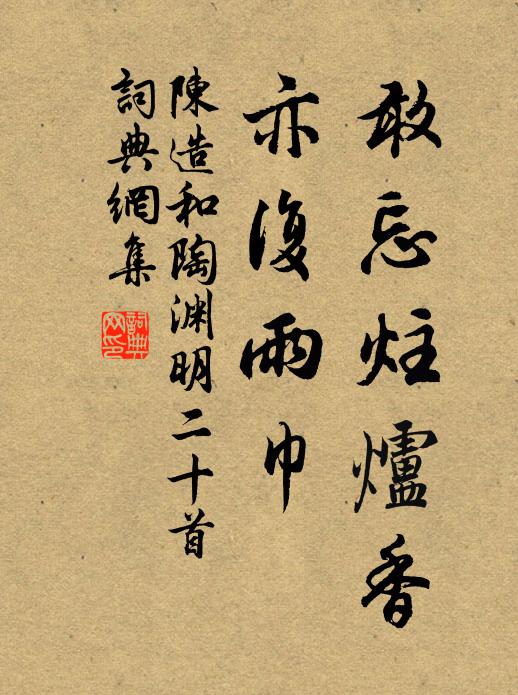 敢忘炷爐香
亦復雨巾
陳造和陶渊明二十首
詞典網集
詞典網印